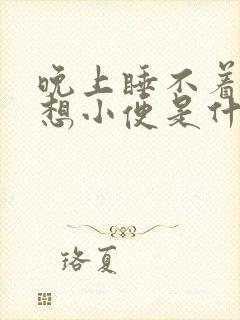 晚上睡不着
想小便是什
珞夏